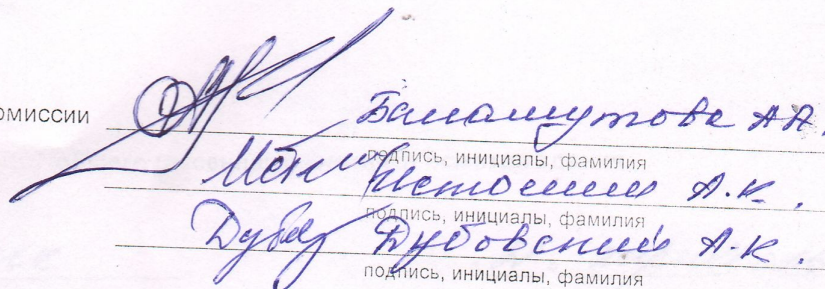 омиссии Баламутова А А.
подпись, инициалы, фамилия
Истомин А.К.
подпись, инициалы, фамилия
Дубовский А.К.
подпись, инициалы, фамилия